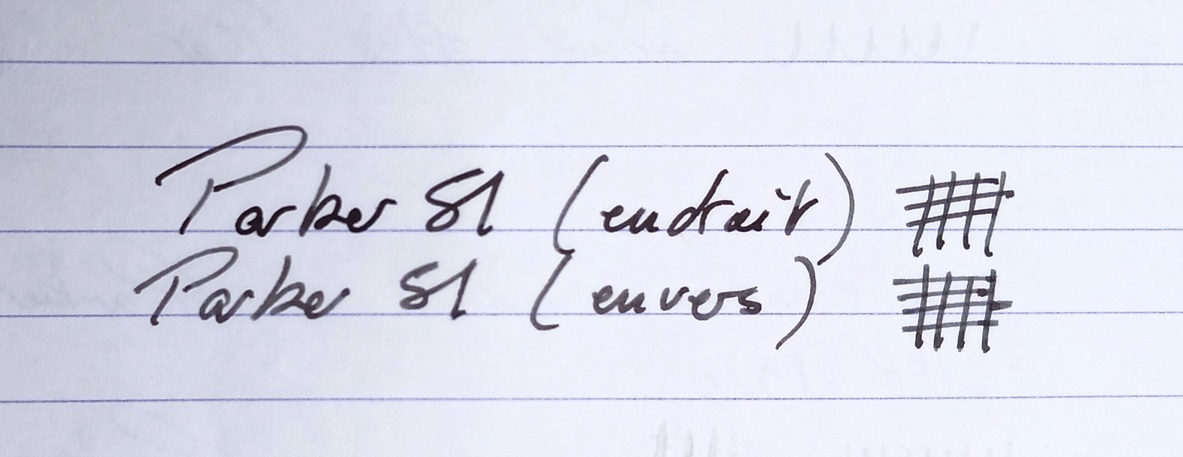 Parker 51 (endroit)
Parker 51 (envers)